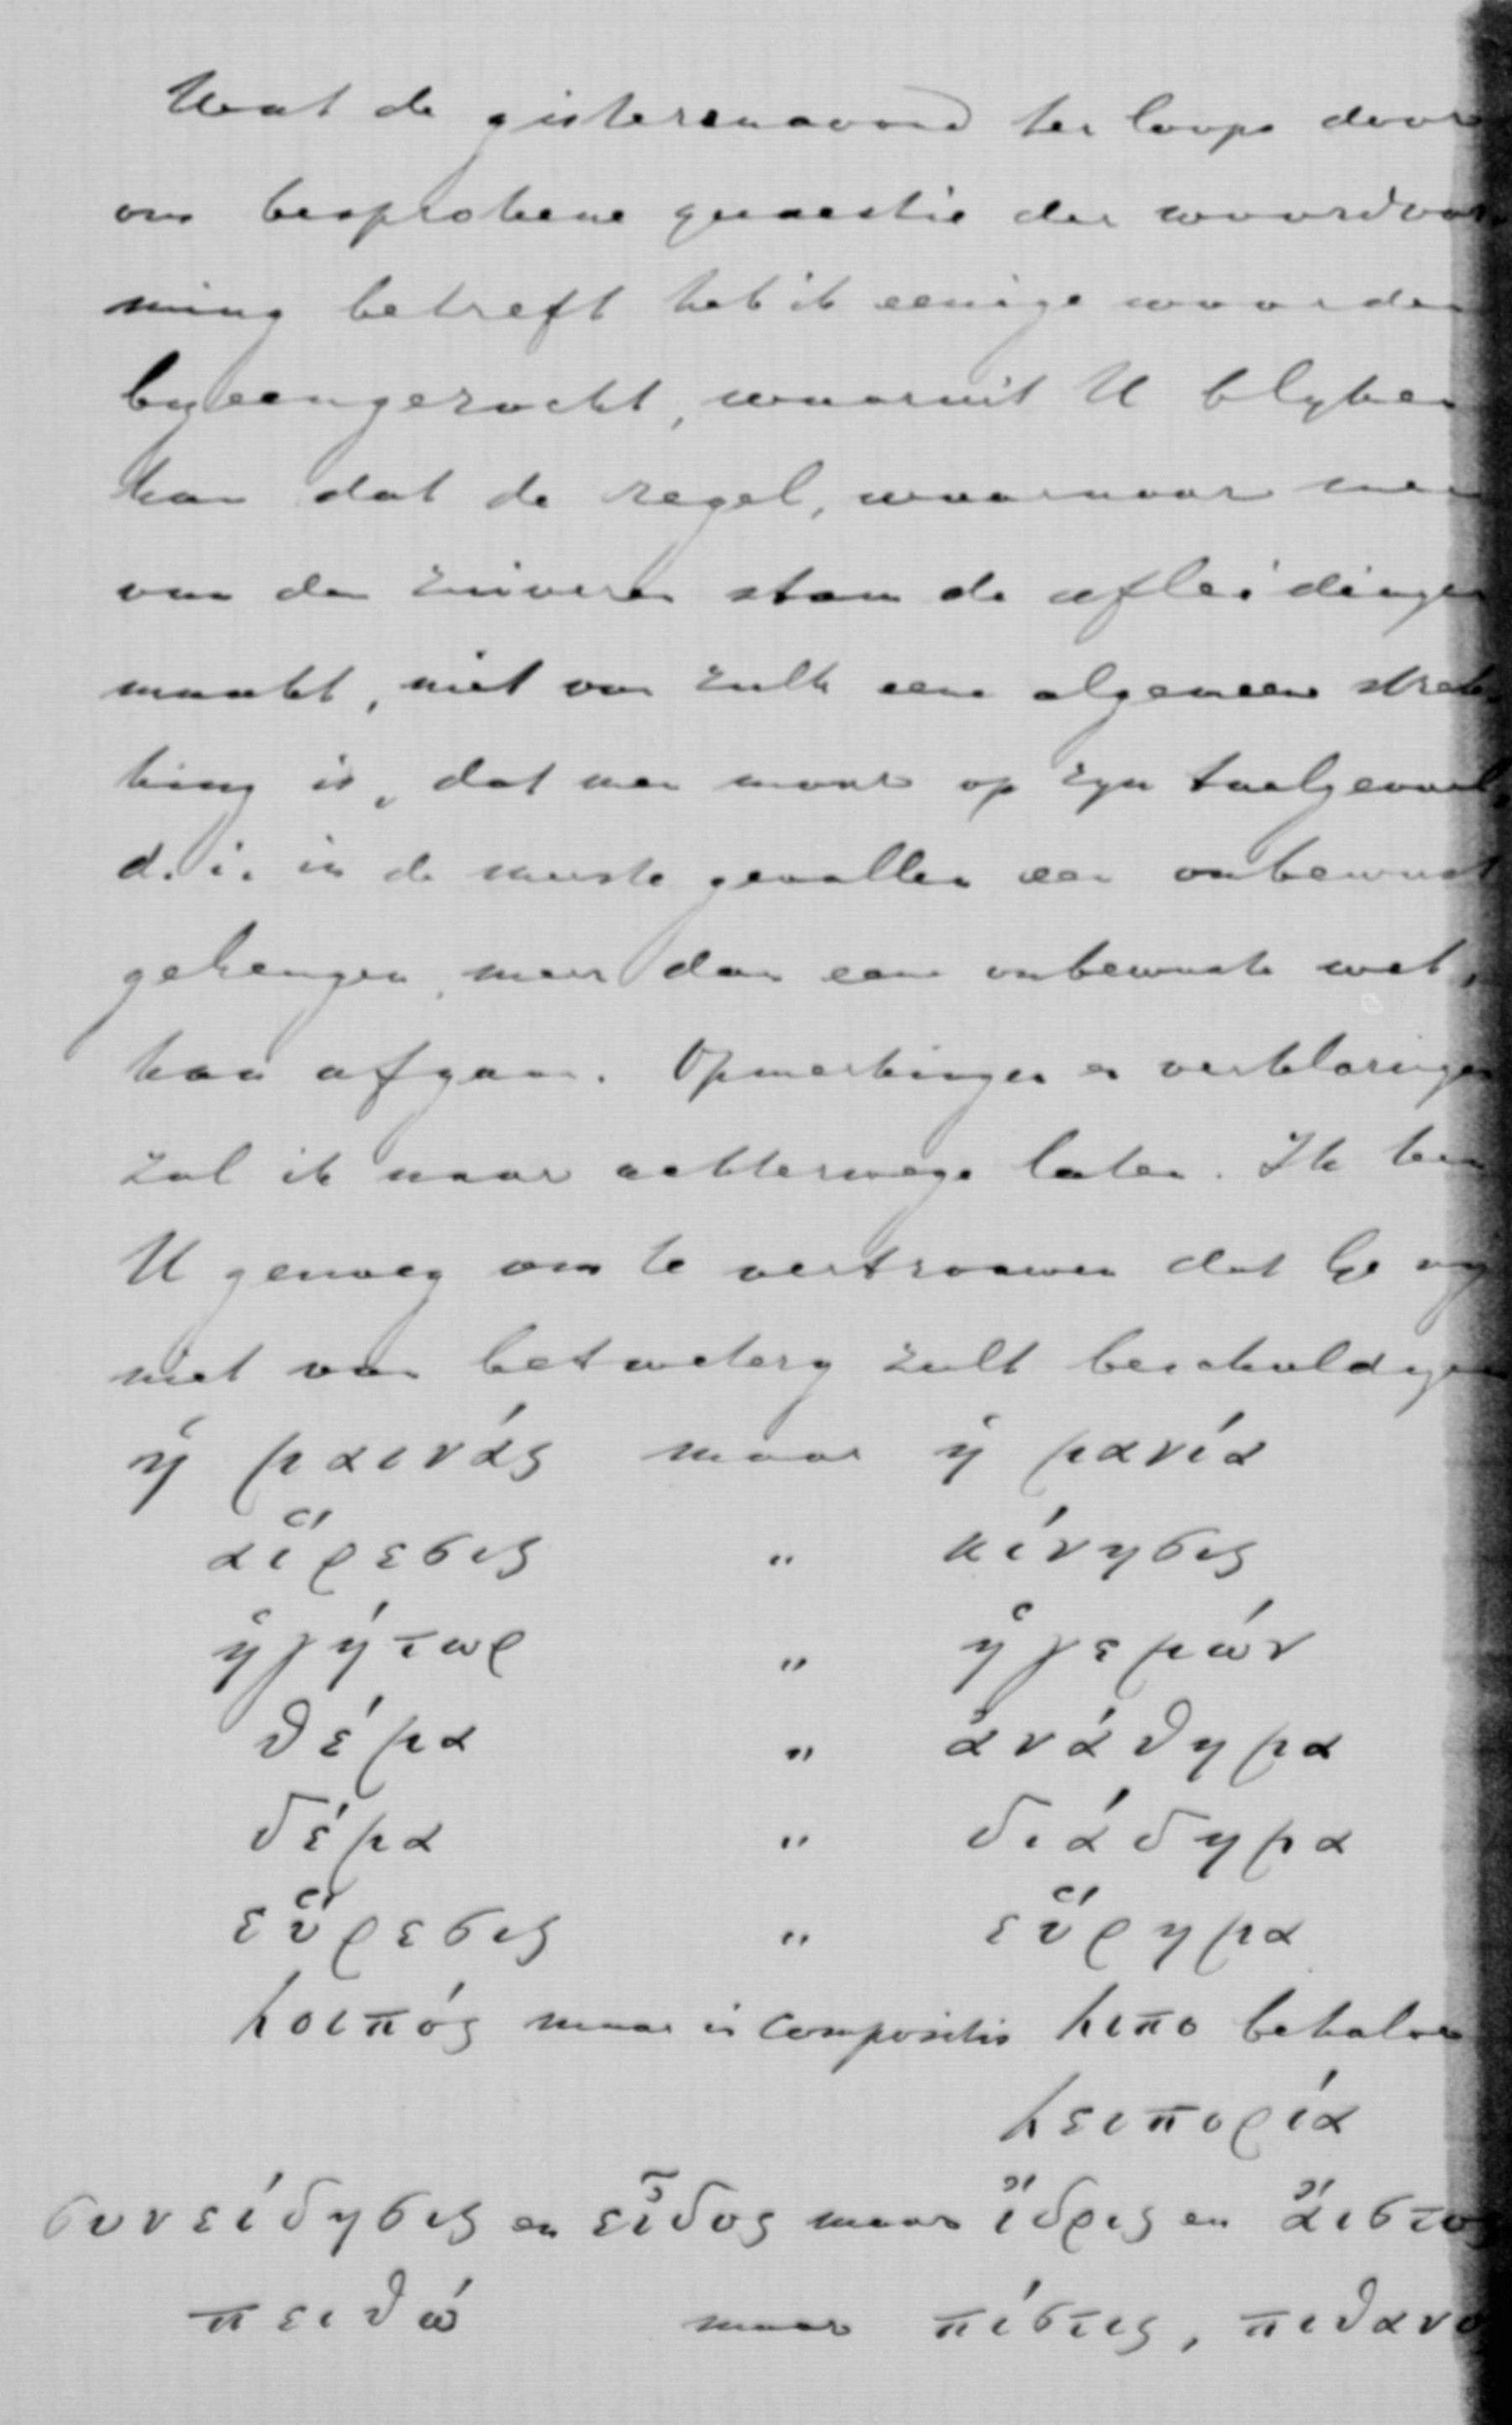 Wat de gisterenavond ter loops door
ons besprokene quaestie der woordvor
ming betreft heb ik eenige woorden
byeengezocht, waaruit U blyken
kan dat de regel, waarnaar men
van den zuiveren stam de afleidingen
maakt, niet van zulk eene algemeene strek
king is, dat men maar op zyn taalgevoel,
d. i. in de meeste gevallen een onbewust
geheugen, meer dan eene onbewuste wet,
kan afgaan. Opmerkingen en verklaringen
zal ik maar achterwege laten. Ik ken
U genoeg om te vertrouwen dat Ge my
niet van betwetery zult beschuldigen
ἡ μαινάς maar ἡ μανία
αἵρεσις " κίνησις
ἡγήτωρ " ἡγεμών
θέμα " ἀνάθημα
δέμα " διάδημα
εὕρεσις " εὕρημα
λοιπός maar in compositis λιπο behalve
λειπορία
συνείδησις en εἶδος maar ἴδρις en ἄιστος
πειθώ maar πίστις, πιθανο